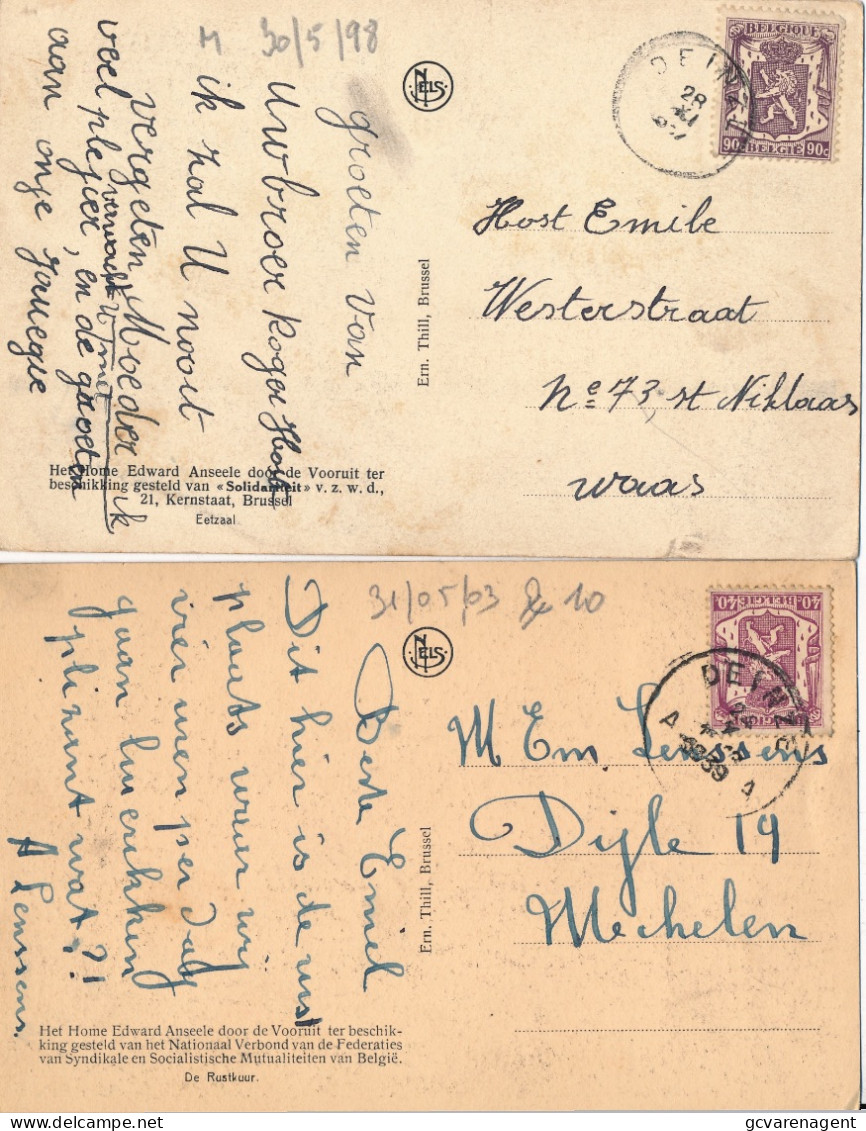 M 30/5/98
groeten van
Uw broer Roger Host
ik zal U nooit
vergeten, Moeder ik
verwacht U met
veel plezier, en de groeten
aan onze
NELS
Ern. Thill, Brussel
Het Home Edward Anseele door de Vooruit ter
beschikking gesteld van «Solidariteit» v. z. w. d.,
21, Kernstaat, Brussel
Eetzaal
BELGIQUE
90c BELGIË 90c
DEINZE
28
XI
Host Emile
Westerstraat
Ne 73, st Niklaas
waas
31/05/03 10
Beste Emiel
Dit hier is de
plaats waar wij
vier men per dag
gaan
plizant wat?!
A Lenssens.
NELS
Ern. Thill, Brussel
Het Home Edward Anseele door de Vooruit ter beschik-
king gesteld van het Nationaal Verbond van de Federaties
van Syndikale en Socialistische Mutualiteiten van België.
De Rustkuur.
40c BELGIË 40c
BELGIQUE
DEINZE
A 1939 A
M Em. Lenssens
Dijle 19
Mechelen
gcvarenagent